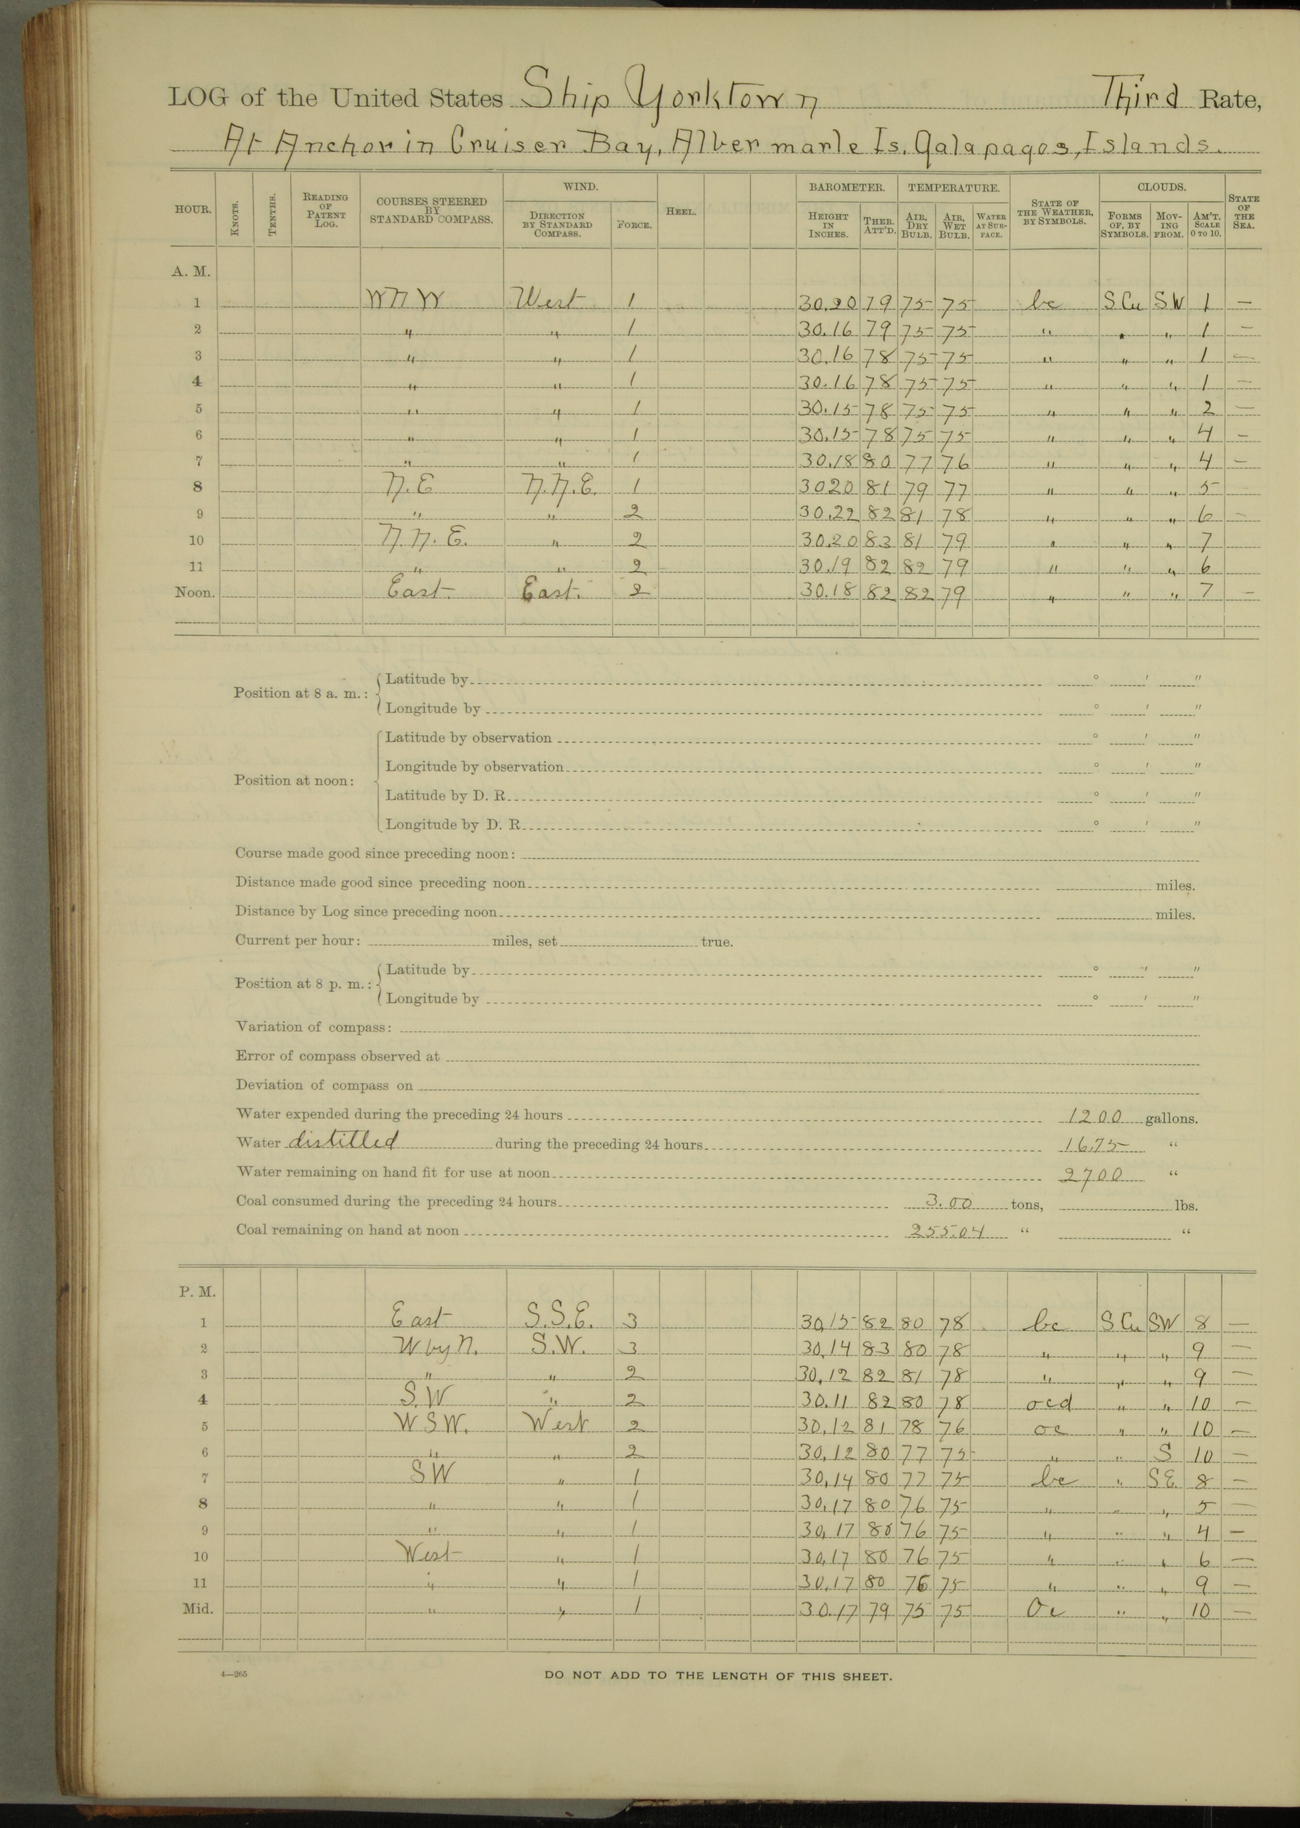 LOG of the United States Ship Yorktown Third Rate,
At Anchor in Cruiser Bay, Albermarle Is. Galapagos, Islands.
HOUR. KNOTS. TENTHS. READING OF PATENT LOG. COURSES STEERED BY STANDARD COMPASS. WIND. DIRECTION BY STANDARD COMPASS. FORCE. HEEL. BAROMETER. HEIGHT IN INCHES. THER. ATT'D. TEMPERATURE. AIR, DRY BULB. AIR, WET BULB. WATER AT SURFACE. STATE OF THE WEATHER, BY SYMBOLS. CLOUDS. FORMS OF, BY SYMBOLS. MOVING FROM. AM'T. SCALE 0 TO 10. STATE OF THE SEA.
A. M.
1 WNW West 1 30.20 79 75 75 bc S.Cu SW 1 —
2 " " 1 30.16 79 75 75 " " " 1 —
3 " " 1 30.16 78 75 75 " " " 1 —
4 " " 1 30.16 78 75 75 " " " 1 —
5 " " 1 30.15 78 75 75 " " " 2 —
6 " " 1 30.15 78 75 75 " " " 4 —
7 " " 1 30.18 80 77 76 " " " 4 —
8 N.E N.N.E. 1 3020 81 79 77 " " " 5 —
9 " " 2 30.22 82 81 78 " " " 6 —
10 N.N.E. " 2 30.20 83 81 79 " " " 7
11 " " 2 30.19 82 82 79 " " " 6
Noon. East. East. 2 30.18 82 82 79 " " " 7 —
Position at 8 a. m.: Latitude by ° ' "
Longitude by ° ' "
Position at noon: Latitude by observation ° ' "
Longitude by observation ° ' "
Latitude by D. R. ° ' "
Longitude by D. R. ° ' "
Course made good since preceding noon:
Distance made good since preceding noon miles.
Distance by Log since preceding noon miles.
Current per hour: miles, set true.
Position at 8 p. m.: Latitude by ° ' "
Longitude by ° ' "
Variation of compass:
Error of compass observed at
Deviation of compass on
Water expended during the preceding 24 hours 1200 gallons.
Water distilled during the preceding 24 hours 1675 "
Water remaining on hand fit for use at noon 2700 "
Coal consumed during the preceding 24 hours 3.00 tons, lbs.
Coal remaining on hand at noon 255.04 " "
P. M.
1 East S.S.E. 3 30.15 82 80 78 bc S.Cu SW 8 —
2 W by N. S.W. 3 30.14 83 80 78 " " " 9 —
3 " " 2 30.12 82 81 78 " " " 9 —
4 S.W " 2 30.11 82 80 78 ocd " " 10 —
5 WSW. West 2 30.12 81 78 76 oc " " 10 —
6 " " 2 30.12 80 77 75 " " S 10 —
7 SW " 1 30.14 80 77 75 bc " SE 8 —
8 " " 1 30.17 80 76 75 " " " 5 —
9 " " 1 30.17 80 76 75 " " " 4 —
10 West " 1 30.17 80 76 75 " " " 6 —
11 " " 1 30.17 80 76 75 " " " 9 —
Mid. " " 1 30.17 79 75 75 Oc " " 10 —
4—265 DO NOT ADD TO THE LENGTH OF THIS SHEET.